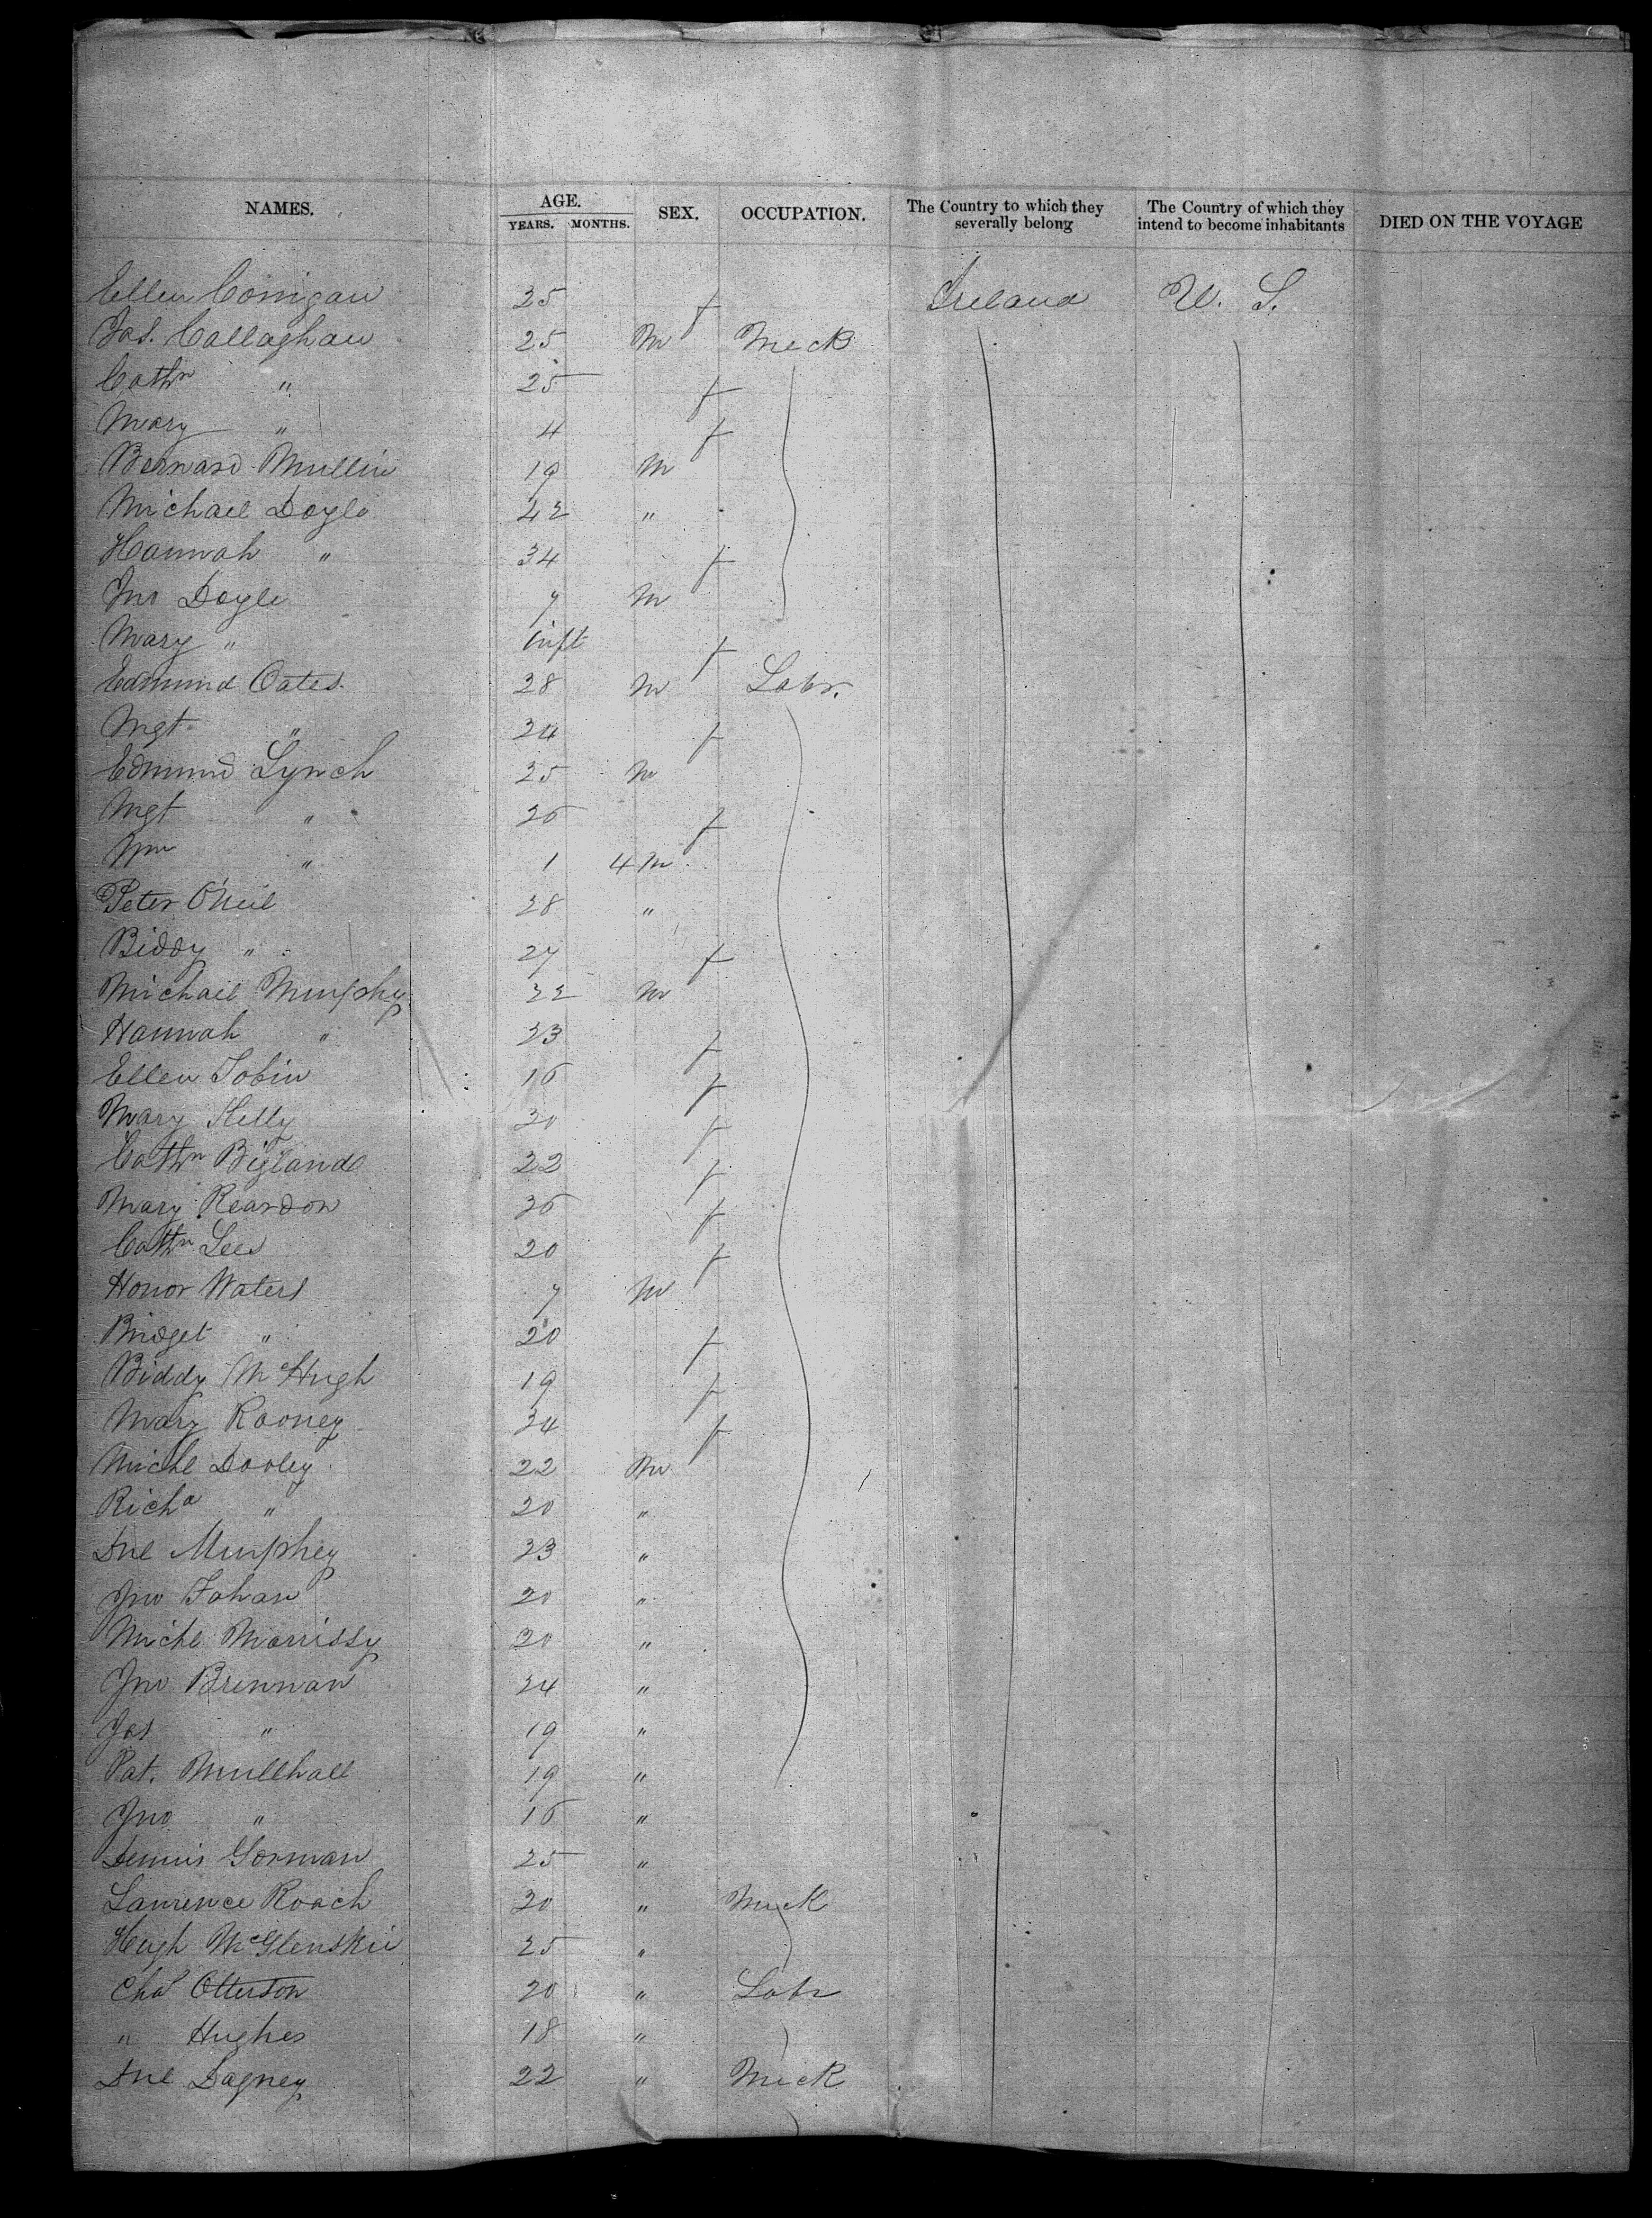 NAMES. AGE. YEARS. MONTHS. SEX. OCCUPATION. The Country to which they severally belong The Country of which they intend to become inhabitants DIED ON THE VOYAGE
Ellen Corrigan 35 f Ireland U. S.
Jas. Callaghan 25 M Meck
Cathn " 25 f
Mary " 4 f
Bernard Mullin 19 M
Michael Doyle 42 "
Hannah " 34 f
Jno Doyle 7 M
Mary " Inft f
Edmund Oates 28 M Labr.
Mgt " 24 f
Edmund Lynch 25 M
Mgt " 26 f
Wm " 1 4 M
Peter O'Neil 28 "
Biddy " 27 f
Michael Murphy 32 M
Hannah " 23 f
Ellen Tobin 16 f
Mary Kelly 20 f
Cathn Bigland 22 f
Mary Reardon 36 f
Cathn Lees 20 f
Honor Waters 7 M
Bridget " 20 f
Biddy McHugh 19 f
Mary Rooney 34 f
Michl Dooley 22 M
Richd " 20 "
Dnl Murphey 23 "
Jno Fahan 20 "
Michl Morrissy 20 "
Jno Brennan 24 "
Jas " 19 "
Pat. Mullhall 19 "
Jno " 16 "
Dennis Gorman 25 "
Laurence Roach 20 " Meck
Hugh McGlenskie 25 "
Chas Otterson 20 " Labr
" Hughes 18 "
Dnl Dagney 22 " Meck